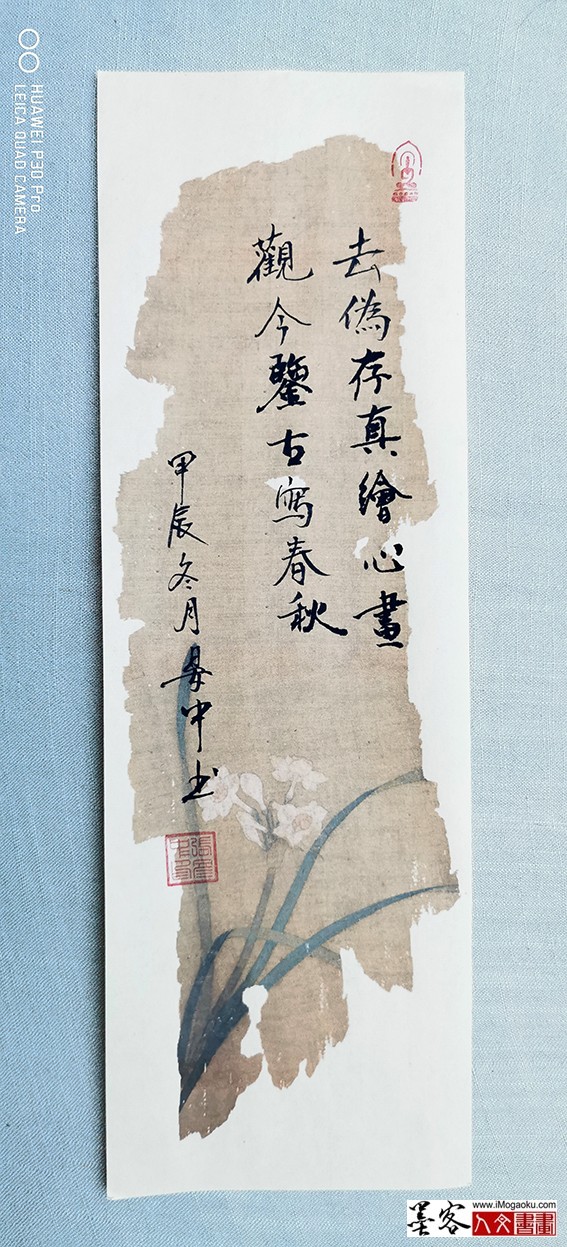 去偽存真繪心畫
觀今鑒古寫春秋
甲辰冬月旻中书
HUAWEI P30 Pro
LEICA QUAD CAMERA
www.iMogaoku.com
墨客
人文書畫